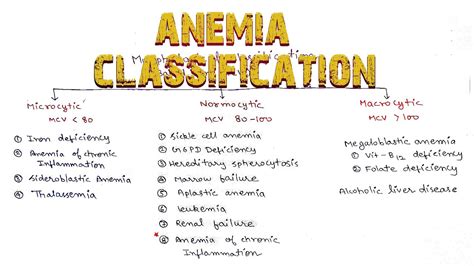 ANEMIA
CLASSIFICATION
Microcytic
MCV < 80
① Iron deficiency
② Anemia of chronic
Inflammation
③ Sideroblastic Anemia
④ Thalassemia
Normocytic
MCV 80-100
① Sickle cell anemia
② G6PD Deficiency
③ Hereditary spherocytosis
④ Marrow failure
⑤ Aplastic anemia
⑥ leukemia
⑦ Renal failure
* ⑧ Anemia of chronic
Inflammation
Macrocytic
MCV > 100
Megaloblastic anemia
① Vit-B12 deficiency
② Folate deficiency
Alcoholic liver disease